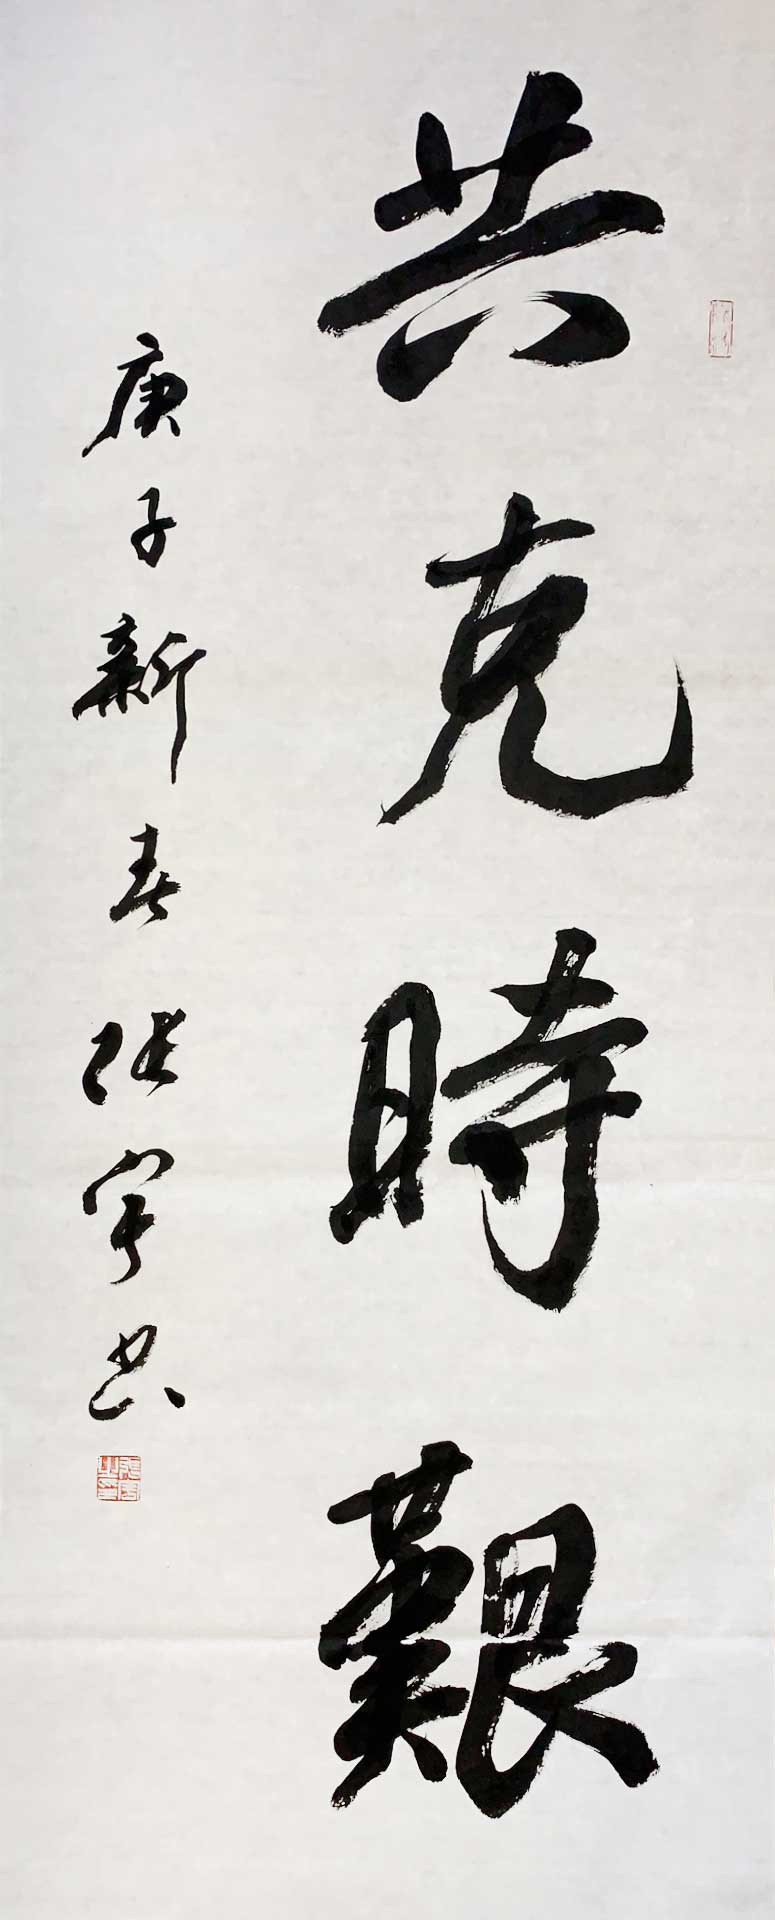 共克時艱
庚子新春張宇书